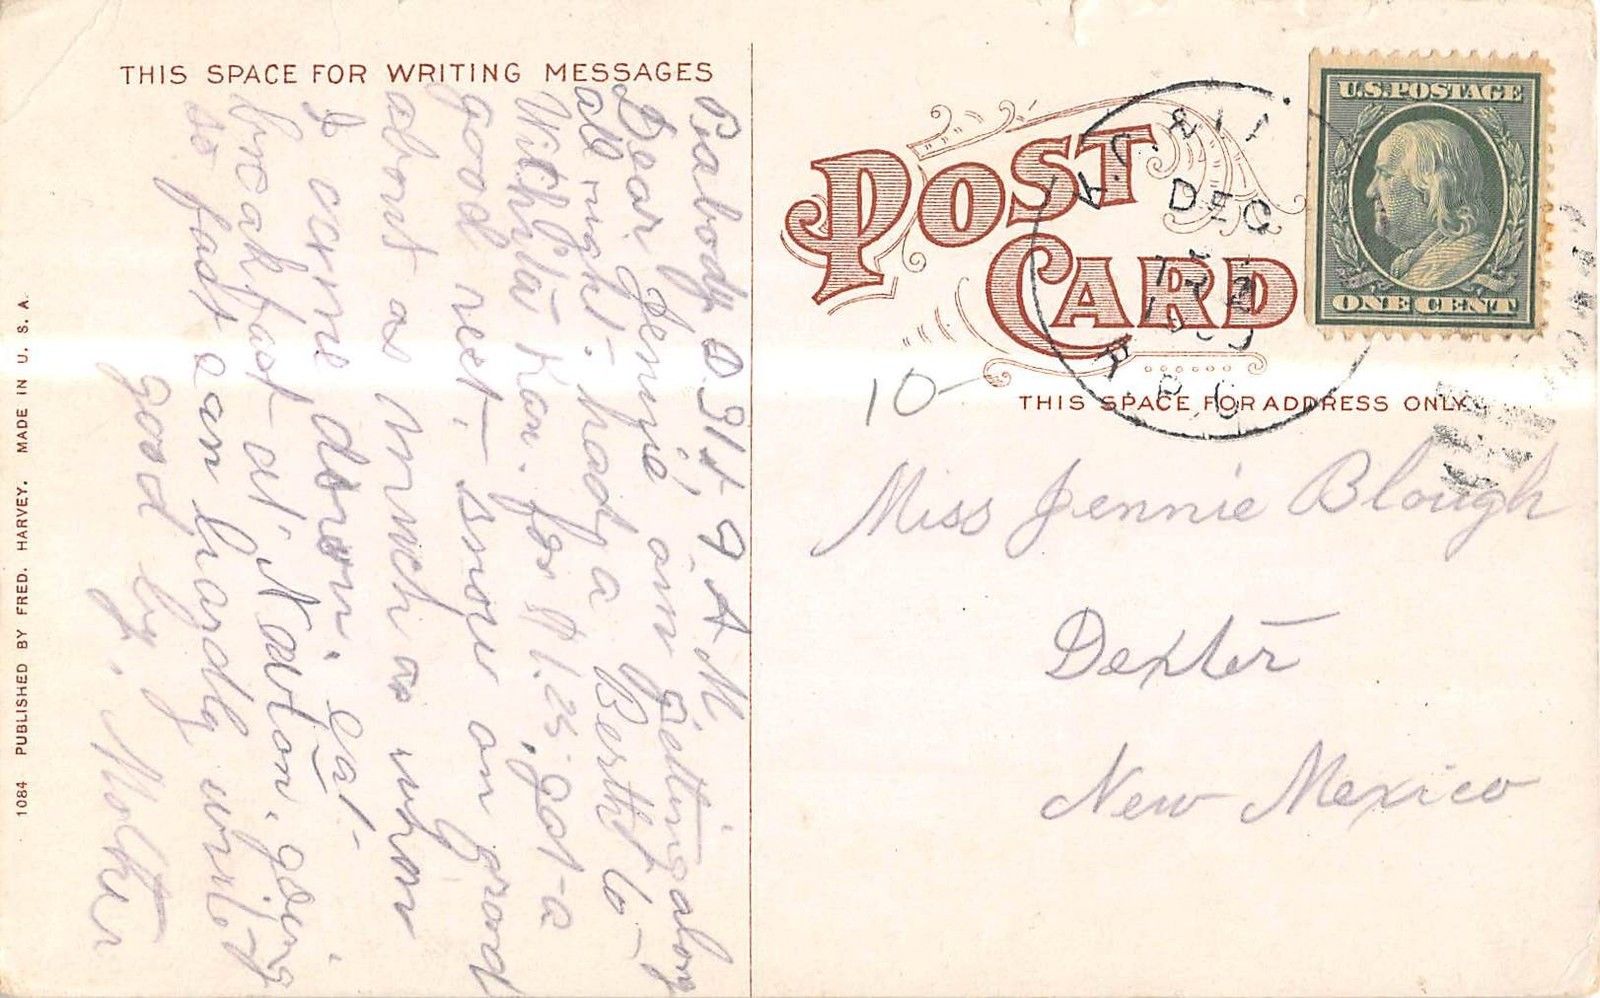 THIS SPACE FOR WRITING MESSAGES
Peabody D. 31st 9-A M.
Dear Jennie, am getting along
all right. had a Berth to-
Wichita Kan. for $1.25, got a
good rest, snow on groud
about as much as when
I came down. eat-
breakfast at Newton. going
so fast can hardly write
good by, Mother
1084 PUBLISHED BY FRED. HARVEY. MADE IN U. S. A.
POST CARD
U.S. POSTAGE
ONE CENT
DEC
R.P.O.
10-
THIS SPACE FOR ADDRESS ONLY
Miss Jennie Blough
Dexter
New Mexico